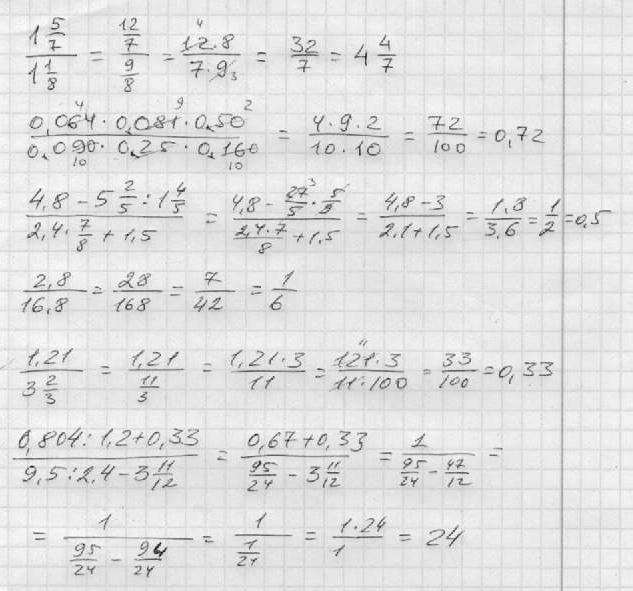 1 5/7 / 1 1/8 = 12/7 / 9/8 = 12·8 / 7·9 = 32/7 = 4 4/7
0,064 · 0,081 · 0,50 / 0,090 · 0,25 · 0,160 = 4·9·2 / 10·10 = 72/100 = 0,72
4,8 − 5 2/5 : 1 4/5 / 2,4 · 7/8 + 1,5 = 4,8 − 27/5 · 5/9 / 2,4·7/8 + 1,5 = 4,8 − 3 / 2,1 + 1,5 = 1,8/3,6 = 1/2 = 0,5
2,8/16,8 = 28/168 = 7/42 = 1/6
1,21 / 3 2/3 = 1,21 / 11/3 = 1,21·3 / 11 = 121·3 / 11·100 = 33/100 = 0,33
0,804 : 1,2 + 0,33 / 9,5 : 2,4 − 3 11/12 = 0,67 + 0,33 / 95/24 − 3 11/12 = 1 / 95/24 − 47/12 =
= 1 / 95/24 − 94/24 = 1 / 1/24 = 1·24 / 1 = 24